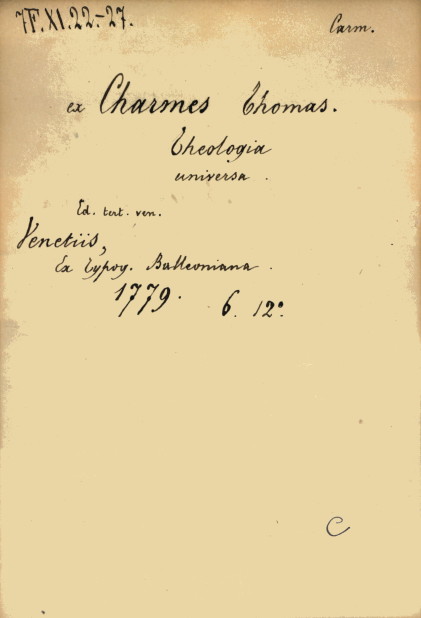 7F.XI.22.-27.
Carm.
ex Charmes Thomas.
Theologia
universa.
Ed. tert. ven.
Venetiis,
Ex typog. Balleoniana.
1779. 6. 12°.
C